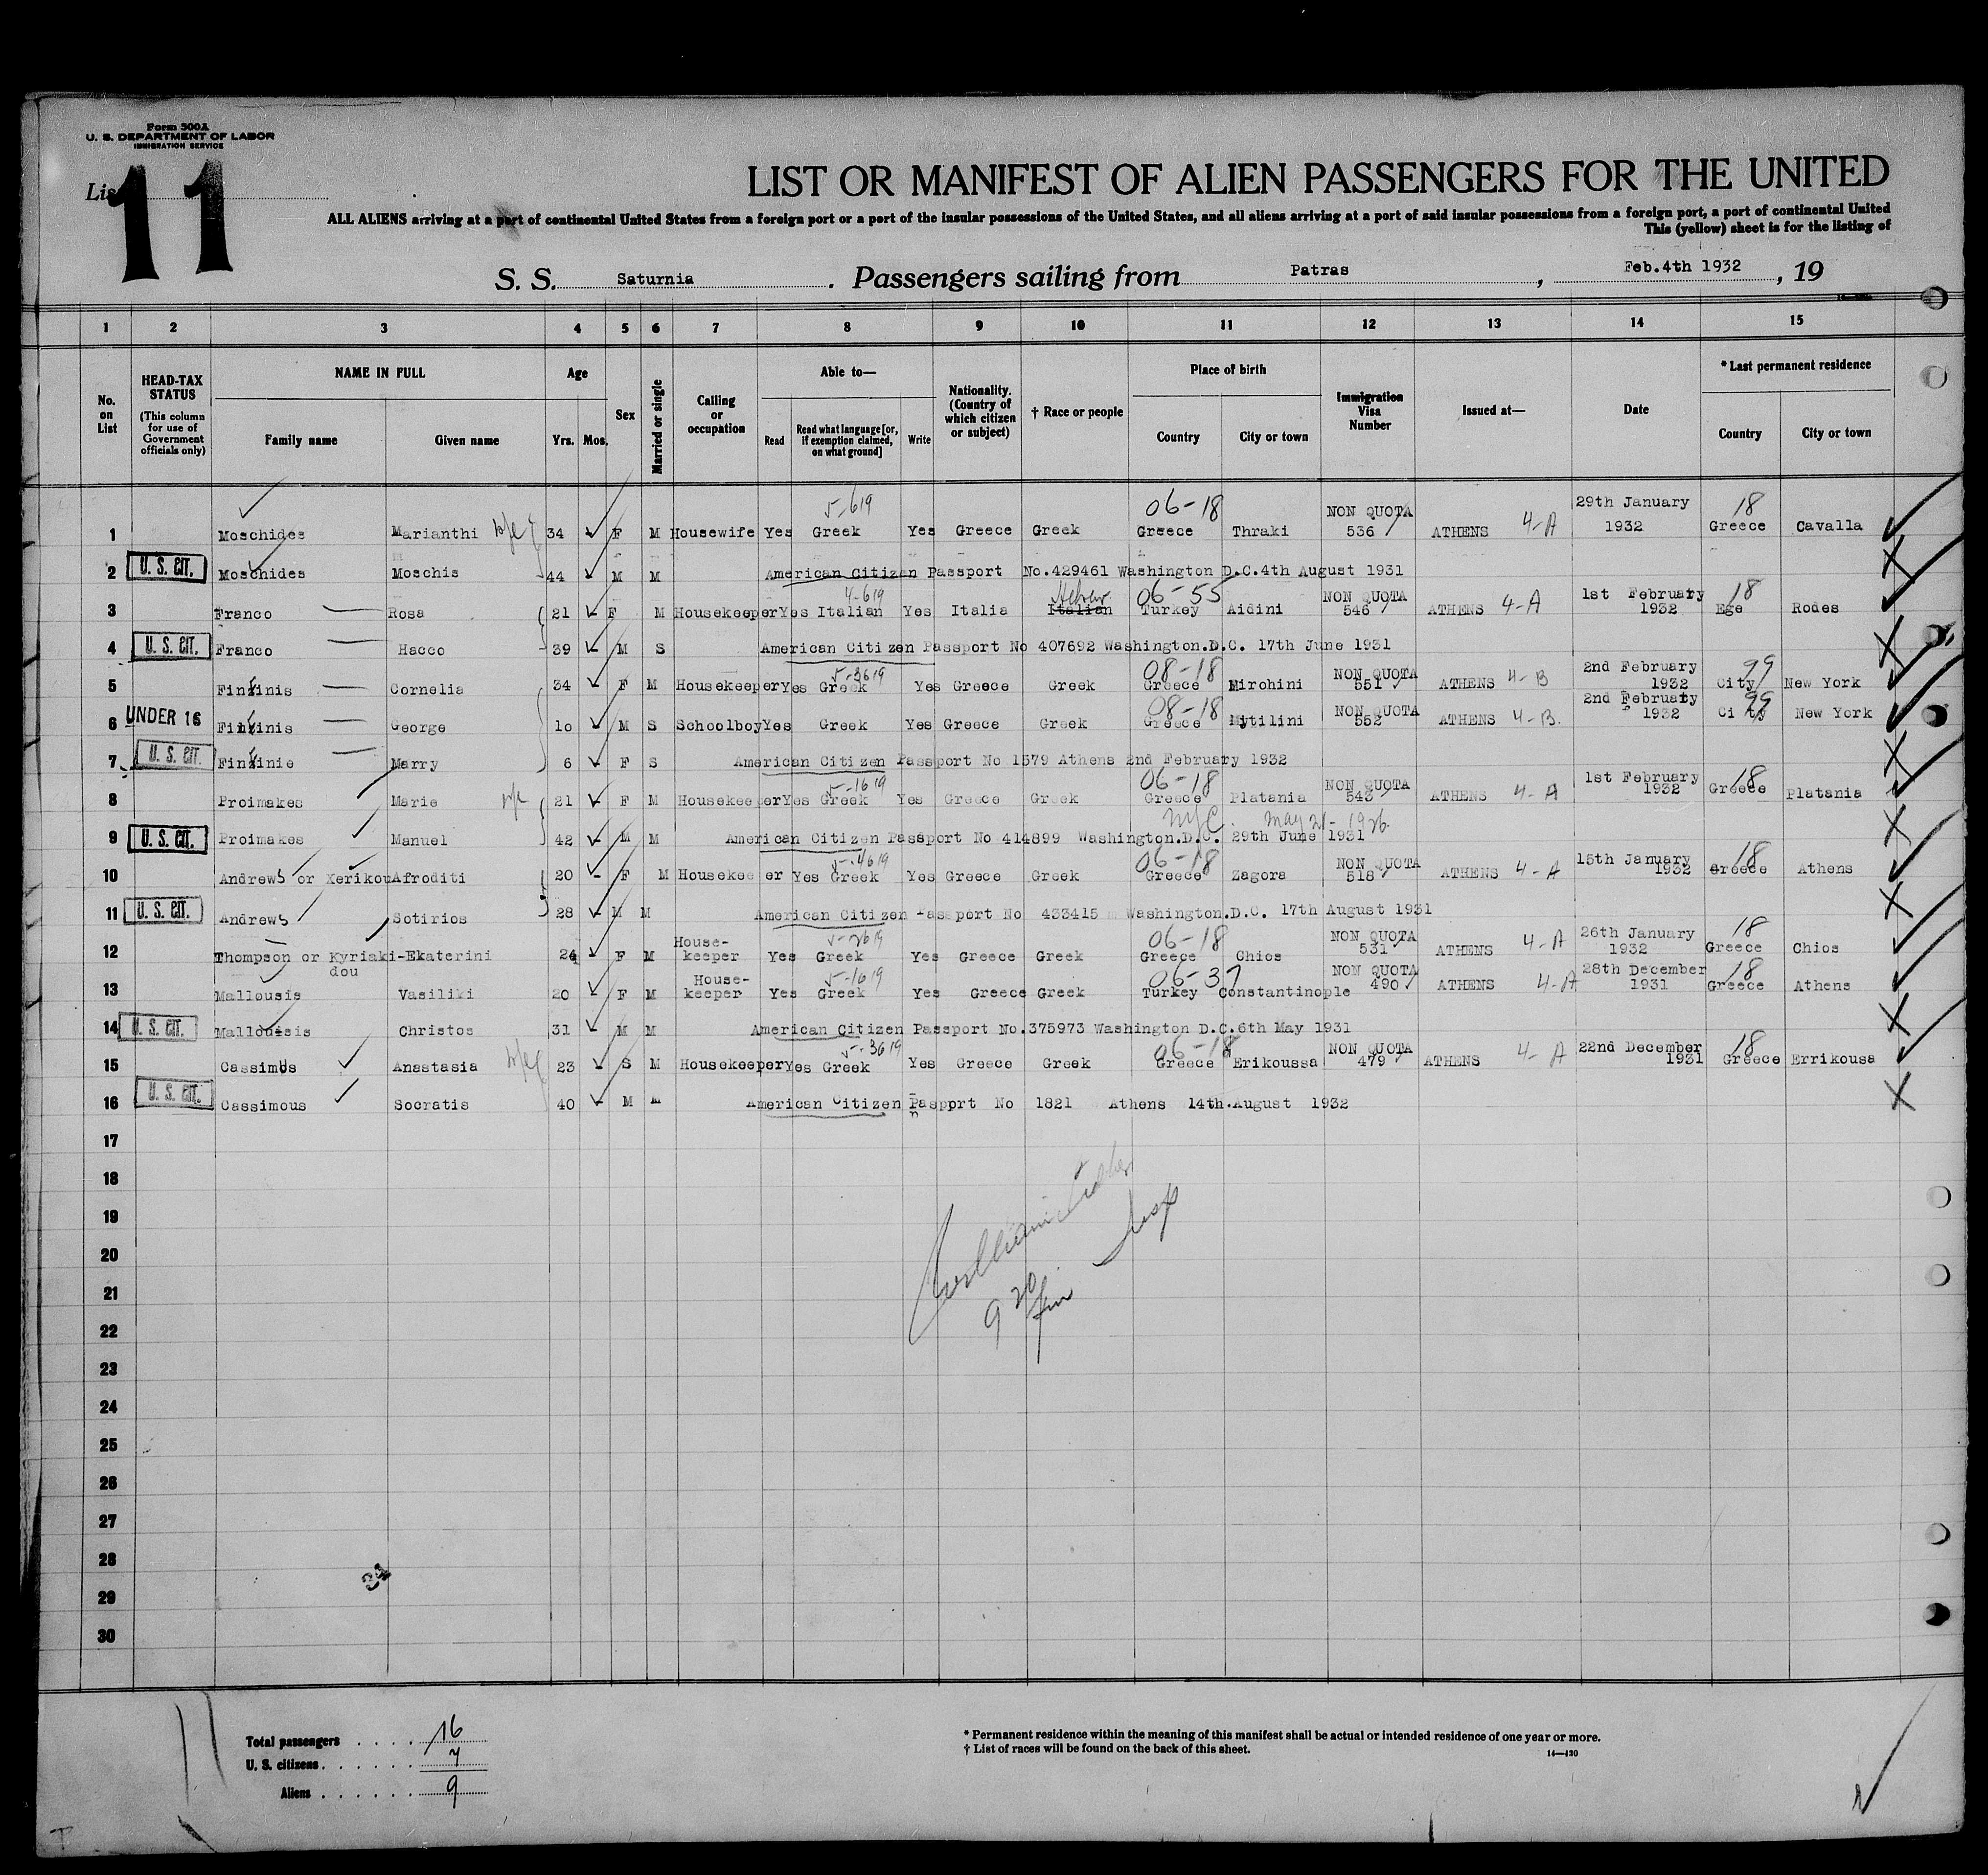 Form 500A
U. S. DEPARTMENT OF LABOR
IMMIGRATION SERVICE
List 11
LIST OR MANIFEST OF ALIEN PASSENGERS FOR THE UNITED
ALL ALIENS arriving at a port of continental United States from a foreign port or a port of the insular possessions of the United States, and all aliens arriving at a port of said insular possessions from a foreign port, a port of continental United
This (yellow) sheet is for the listing of
S. S. Saturnia . Passengers sailing from Patras , Feb.4th 1932 , 19
1 2 3 4 5 6 7 8 9 10 11 12 13 14 15
No. on List
HEAD-TAX STATUS (This column for use of Government officials only)
NAME IN FULL Family name Given name
Age Yrs. Mos.
Sex
Married or single
Calling or occupation
Able to— Read Read what language [or, if exemption claimed, on what ground] Write
Nationality. (Country of which citizen or subject)
† Race or people
Place of birth Country City or town
Immigration Visa Number
Issued at—
Date
* Last permanent residence Country City or town
5-619 06-18 NON QUOTA 29th January 18
1 Moschides Marianthi 34 F M Housewife Yes Greek Yes Greece Greek Greece Thraki 536 ATHENS 4-A 1932 Greece Cavalla
2 U. S. CIT. Moschides Moschis 44 M M American Citizen Passport No.429461 Washington D.C.4th August 1931
4-619 Hebrew 06-55 NON QUOTA 1st February 18
3 Franco Rosa 21 F M Housekeeper Yes Italian Yes Italia Italian Turkey Aidini 546 ATHENS 4-A 1932 Ege Rodes
4 U. S. CIT. Franco Hacco 39 M S American Citizen Passport No 407692 Washington.D.C. 17th June 1931
5-3619 08-18 NON QUOTA 2nd February 99
5 Finzinis Cornelia 34 F M Housekeeper Yes Greek Yes Greece Greek Greece Mirohini 551 ATHENS 4-B 1932 City New York
08-18 NON QUOTA 2nd February 99
6 UNDER 16 Finzinis George 10 M S Schoolboy Yes Greek Yes Greece Greek Greece Mytilini 552 ATHENS 4-B. 1932 City New York
7 U. S. CIT. Finzinie Marry 6 F S American Citizen Passport No 1579 Athens 2nd February 1932
5-1619 06-18 NON QUOTA 1st February 18
8 Proimakes Marie 21 F M Housekeeper Yes Greek Yes Greece Greek Greece Platania 543 ATHENS 4-A 1932 Greece Platania
NYC. May 21-1926.
9 U. S. CIT. Proimakes Manuel 42 M M American Citizen Passport No 414899 Washington.D.C. 29th June 1931
5-4619 06-18 NON QUOTA 15th January 18
10 Andrews or Xerikou Afroditi 20 - F M Housekee er Yes Greek Yes Greece Greek Greece Zagora 518 ATHENS 4-A 1932 Greece Athens
11 U. S. CIT. Andrews Sotirios 28 M M American Citizen Passport No 433415 Washington.D.C. 17th August 1931
House- 5-2619 06-18 NON QUOTA 26th January 18
12 Thompson or Kyriaki-Ekaterini 24 F M keeper Yes Greek Yes Greece Greek Greece Chios 531 ATHENS 4-A 1932 Greece Chios
dou House- 5-1619 06-37 NON QUOTA 28th December 18
13 Mallousis Vasiliki 20 - F M keeper Yes Greek Yes Greece Greek Turkey Constantinople 490 ATHENS 4-A 1931 Greece Athens
14 U. S. CIT. Mallousis Christos 31 M M American Citizen Passport No.375973 Washington D.C.6th May 1931
5-3619 06-18 NON QUOTA 22nd December 18
15 Cassimus Anastasia 23 S M Housekeeper Yes Greek Yes Greece Greek Greece Erikoussa 479 ATHENS 4-A 1931 Greece Errikousa
16 U. S. CIT. Cassimous Socratis 40 - M M American Citizen Paspprt No 1821 Athens 14th.August 1932
17
18
19
20
21
22
23
24
25
26
27
28
29
30
Total passengers . . . . 16
U. S. citizens . . . . . . 7
Aliens . . . . . . 9
* Permanent residence within the meaning of this manifest shall be actual or intended residence of one year or more.
† List of races will be found on the back of this sheet. 14—430